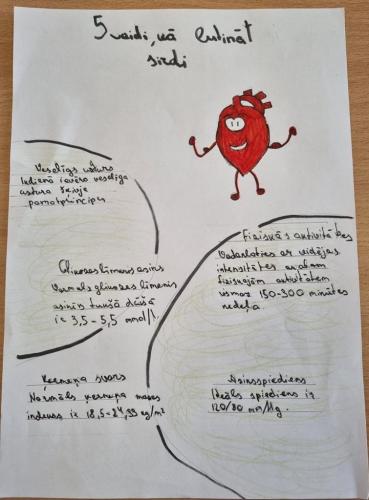 5 veidi, kā lutināt
sirdi
Veselīgs uzturs
Ikdienā ievēro veselīga
uztura šķīvja
pamatprincipus
Glikozes līmenis asinīs
Normāls glikozes līmenis
asinīs tukšā dūšā
ir 3,5-5,5 mmol/l.
Ķermeņa svars
Normāls ķermeņa masas
indekss ir 18,5-24,99 kg/m²
Fiziskās aktivitātes
Nodarboties ar vidējas
intensitātes
fiziskajām aktivitātēm
vismaz 150-300 minūtes
nedēļā.
Asinsspiediens
Ideāls spiediens ir
120/80 mm/Hg.